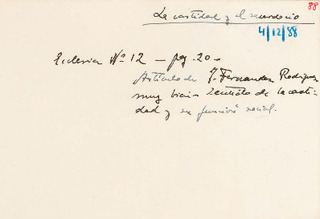 88
La castidad y el sacerdocio
4/12/88
Eclesia Nº 12 - pag. 20 -
Artículo de J. Fernandez Rodriguez
muy bien de la casti-
dad y su función social.